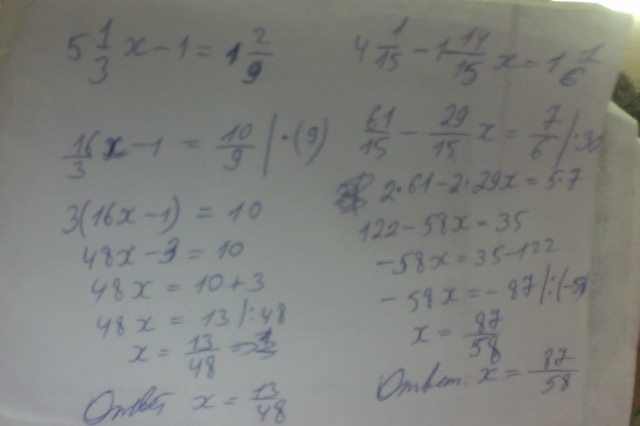 5 1/3 x - 1 = 1 2/9
16/3 x - 1 = 10/9 | ·(9)
3(16x - 1) = 10
48x - 3 = 10
48x = 10 + 3
48x = 13 | :48
x = 13/48
Ответ x = 13/48
4 1/15 - 1 14/15 x = 1 1/6
61/15 - 29/15 x = 7/6 | ·30
2·61 - 2·29x = 5·7
122 - 58x = 35
-58x = 35-122
-58x = -87 | :(-58)
x = 87/58
Ответ: x = 87/58